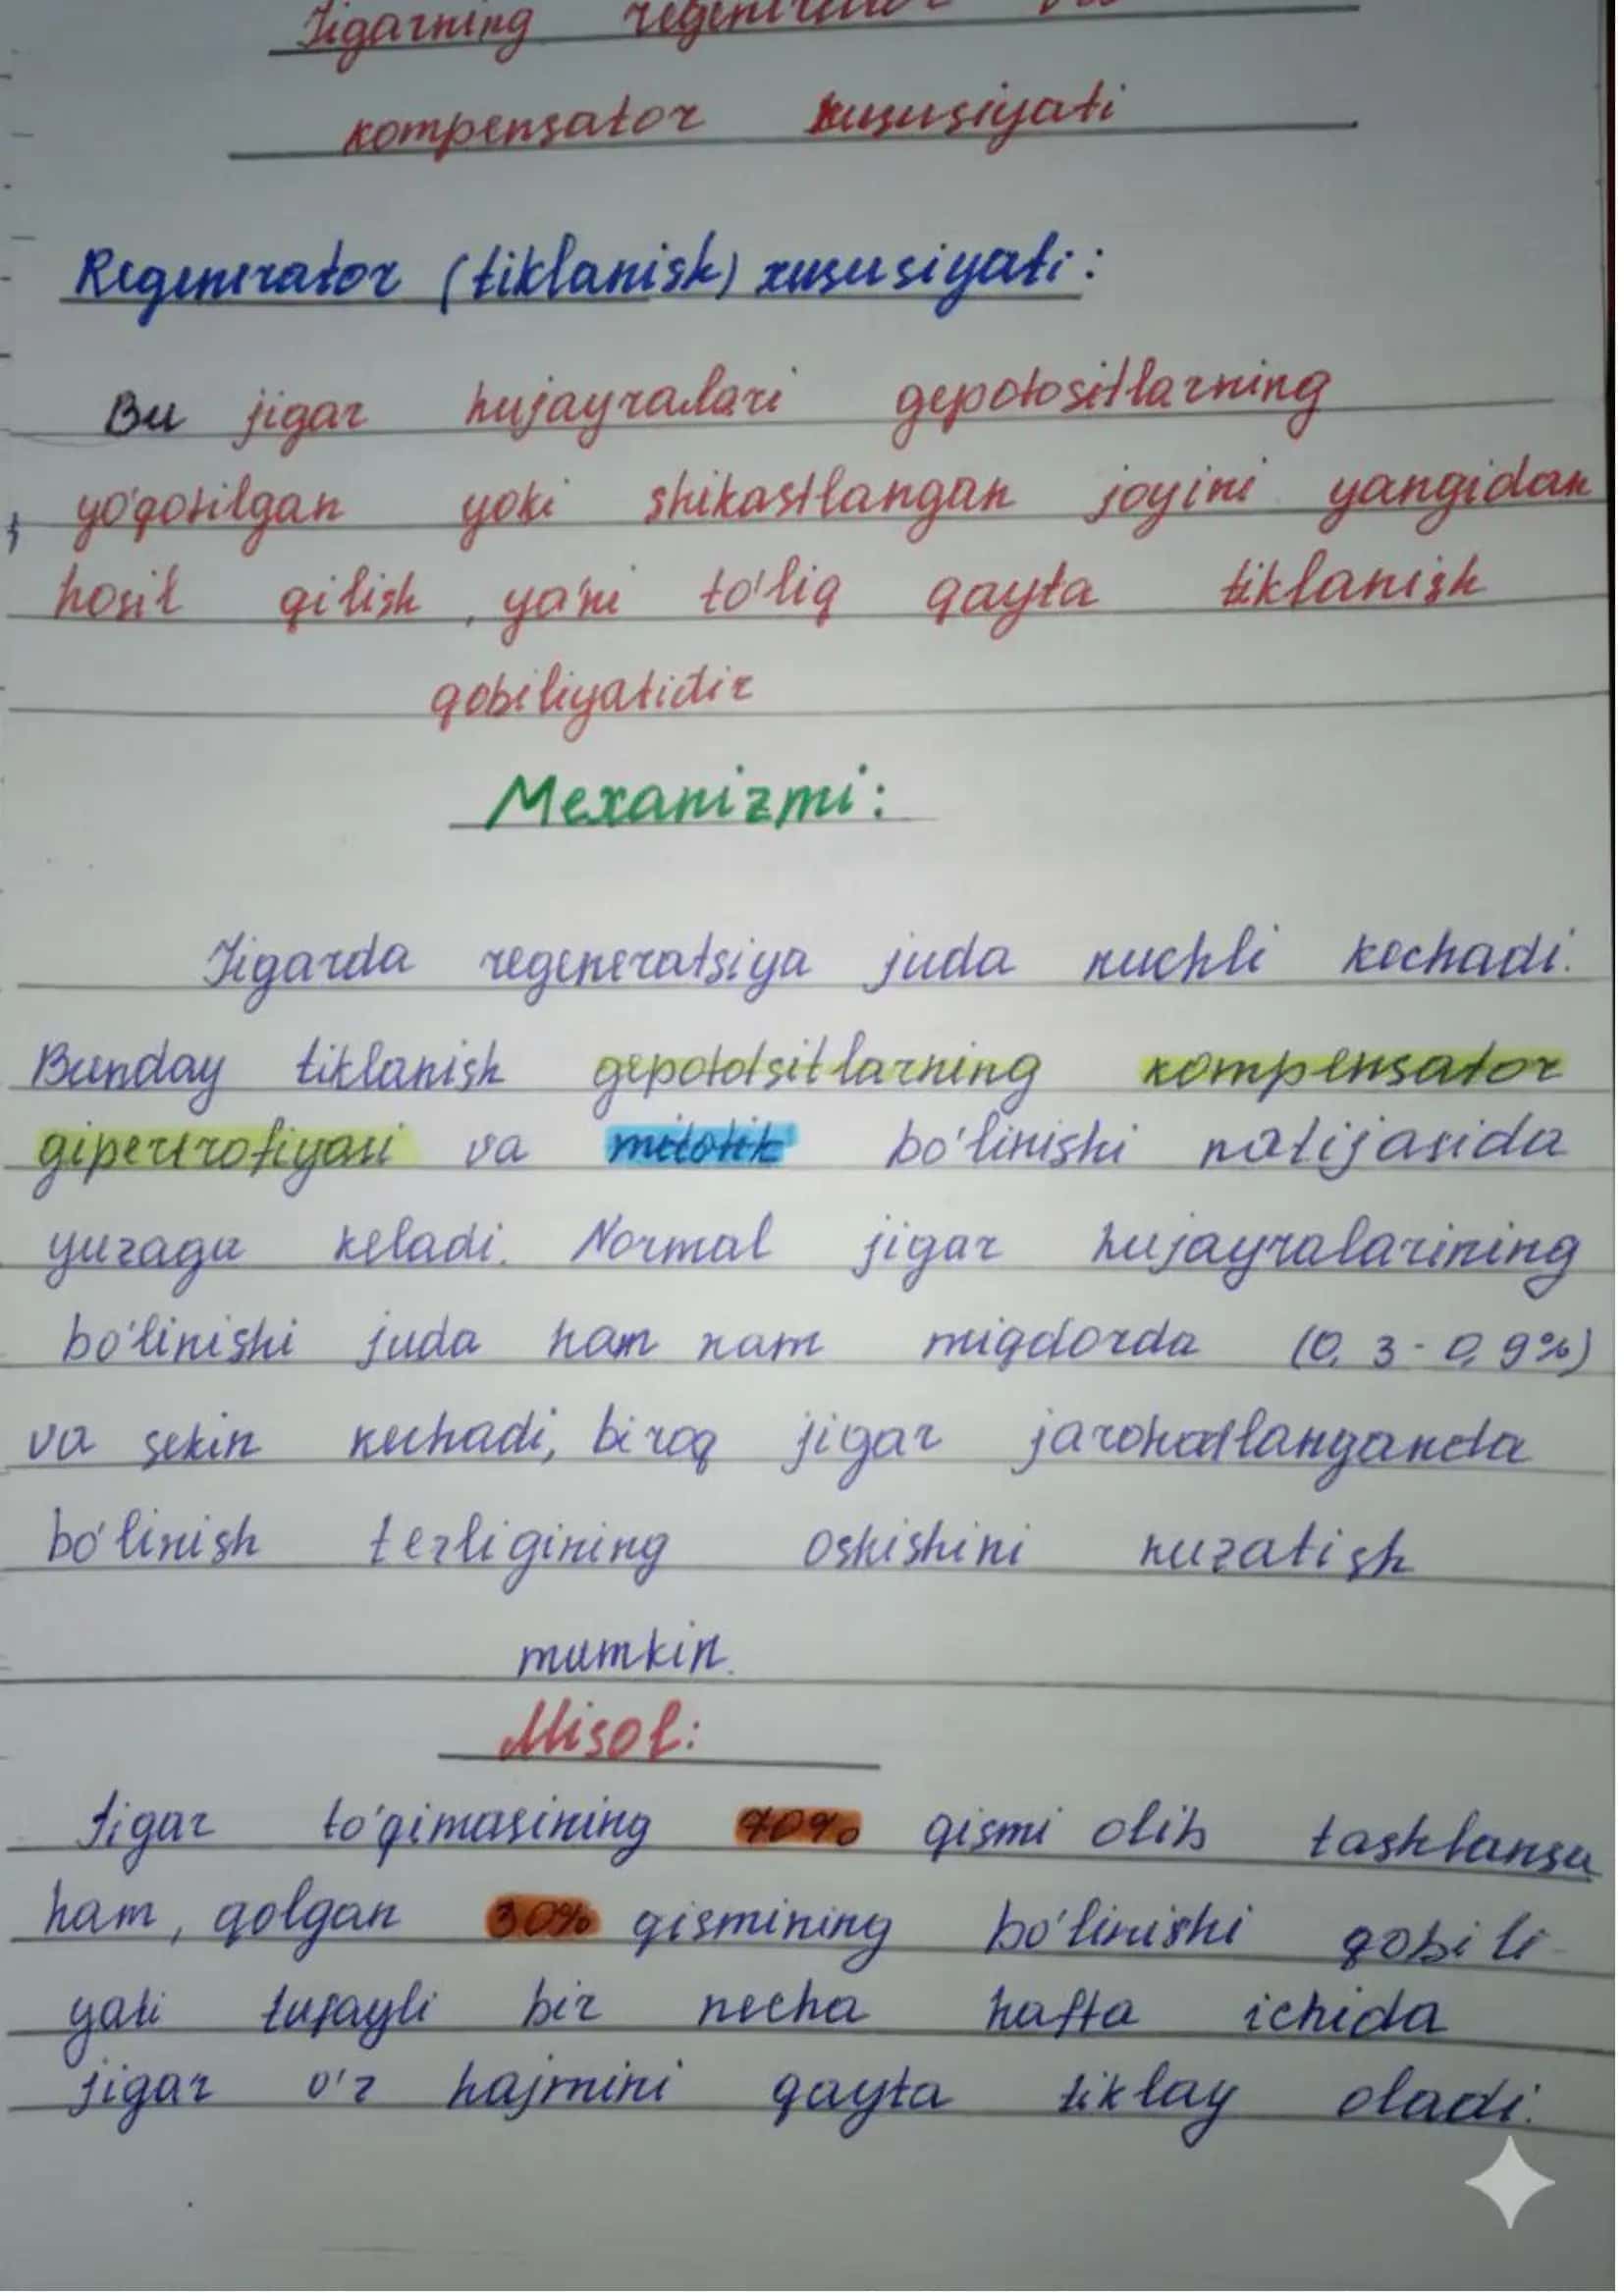 Jigarning regenerator va
kompensator xususiyati
Regenerator (tiklanish) xususiyati:
Bu jigar hujayralari gepototsitlarning
yo'qotilgan yoki shikastlangan joyini yangidan
hosil qilish, ya'ni to'liq qayta tiklanish
qobiliyatidir
Mexanizmi:
Jigarda regeneratsiya juda kuchli kechadi.
Bunday tiklanish gepototsitlarning kompensator
gipertrofiyasi va mitotik bo'linishi natijasida
yuzaga keladi. Normal jigar hujayralarining
bo'linishi juda ham kam miqdorda (0,3-0,9%)
va sekin kechadi, biroq jigar jarohatlanganda
bo'linish tezligining oshishini kuzatish
mumkin.
Misol:
Jigar to'qimasining 70% qismi olib tashlansa
ham, qolgan 30% qismining bo'linishi qobili-
yati tufayli bir necha hafta ichida
jigar o'z hajmini qayta tiklay oladi.